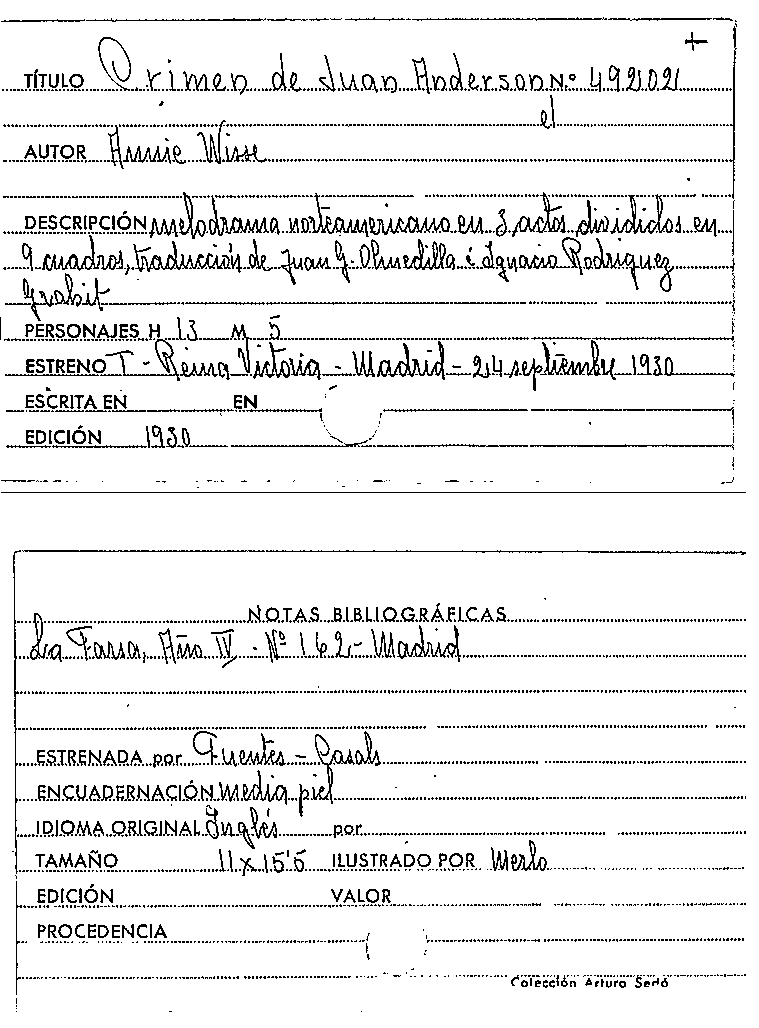 +
TÍTULO Crimen de Juan Anderson N.º 492021
el
AUTOR Annie Wisse
DESCRIPCIÓN melodrama norteamericano en 3 actos divididos en
9 cuadros, traducción de Juan G. Olmedilla é Ignacio Rodriguez
Grabit
PERSONAJES H 13 M 5
ESTRENO T - Reina Victoria - Madrid - 24 septiembre 1930
ESCRITA EN EN
EDICIÓN 1930
NOTAS BIBLIOGRÁFICAS
La Farsa, Año IV - Nº 162 - Madrid
ESTRENADA por Fuentes - Casals
ENCUADERNACIÓN media piel
IDIOMA ORIGINAL Inglés por
TAMAÑO 11 x 15'5 ILUSTRADO POR Merlo
EDICIÓN VALOR
PROCEDENCIA
Colección Arturo Sedó